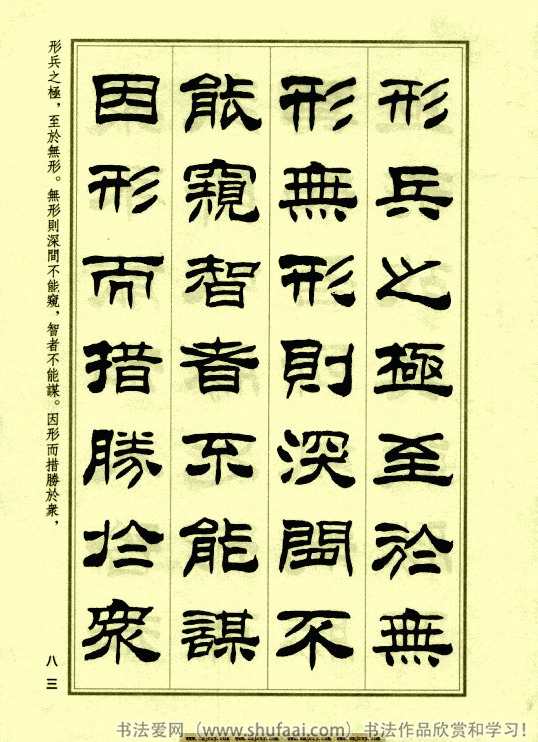 形兵之極至於無
形無形則深間不
能窺智者不能謀
因形而措勝於衆
形兵之極，至於無形。無形則深間不能窺，智者不能謀。因形而措勝於衆，
八三
书法爱网（www.shufaai.com）书法作品欣赏和学习！